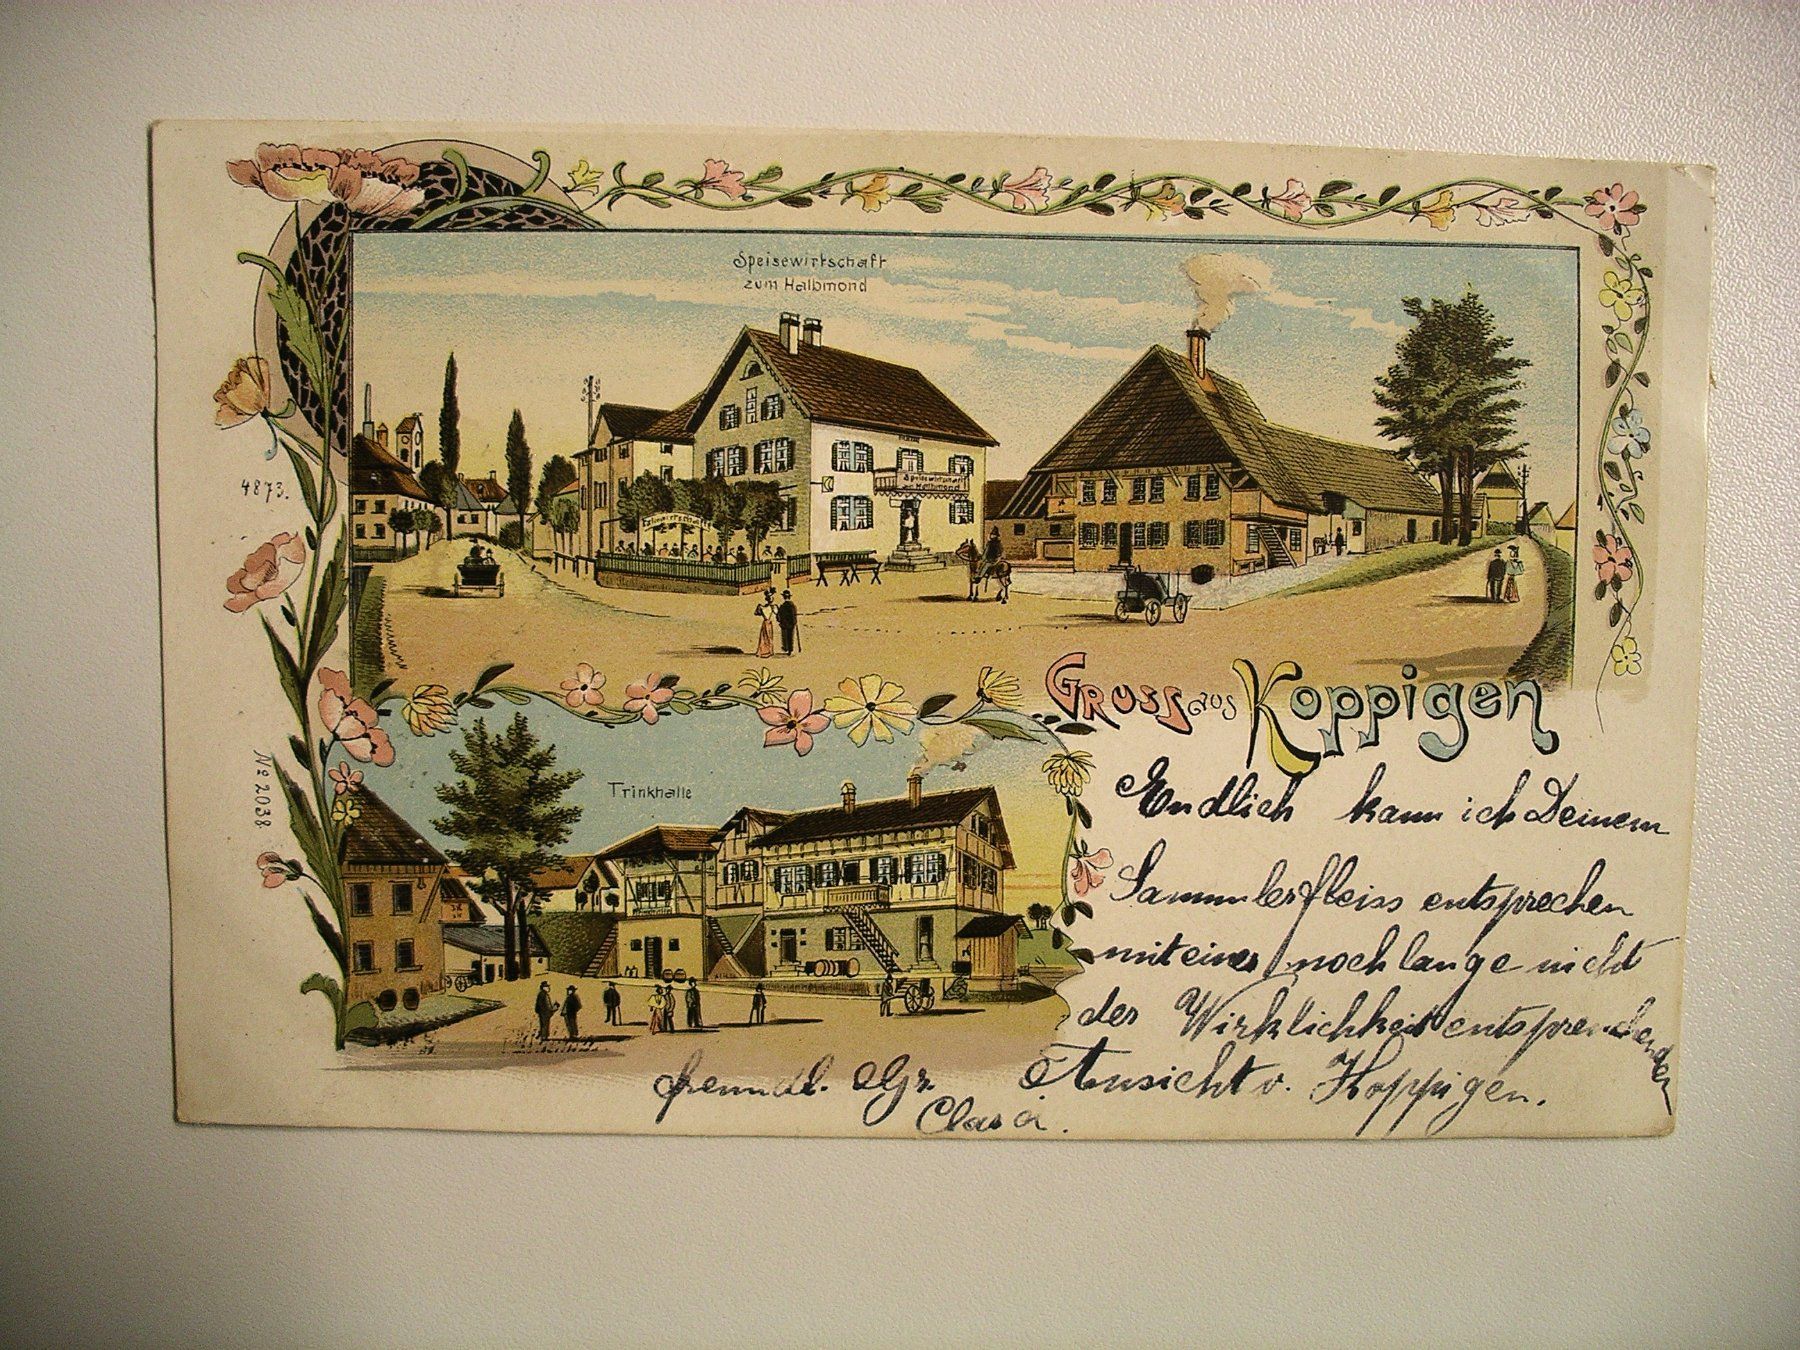 Speisewirtschaft
zum Halbmond
4873.
Speisewirtschaft
zum Halbmond
GRUSS aus Koppigen
No 2038
Trinkhalle
Endlich kann ich Deinem
Sammlerfleiss entsprechen
mit einer noch lange nicht
der Wirklichkeit entsprechenden
Ansicht v. Koppigen.
freundl. Gr.